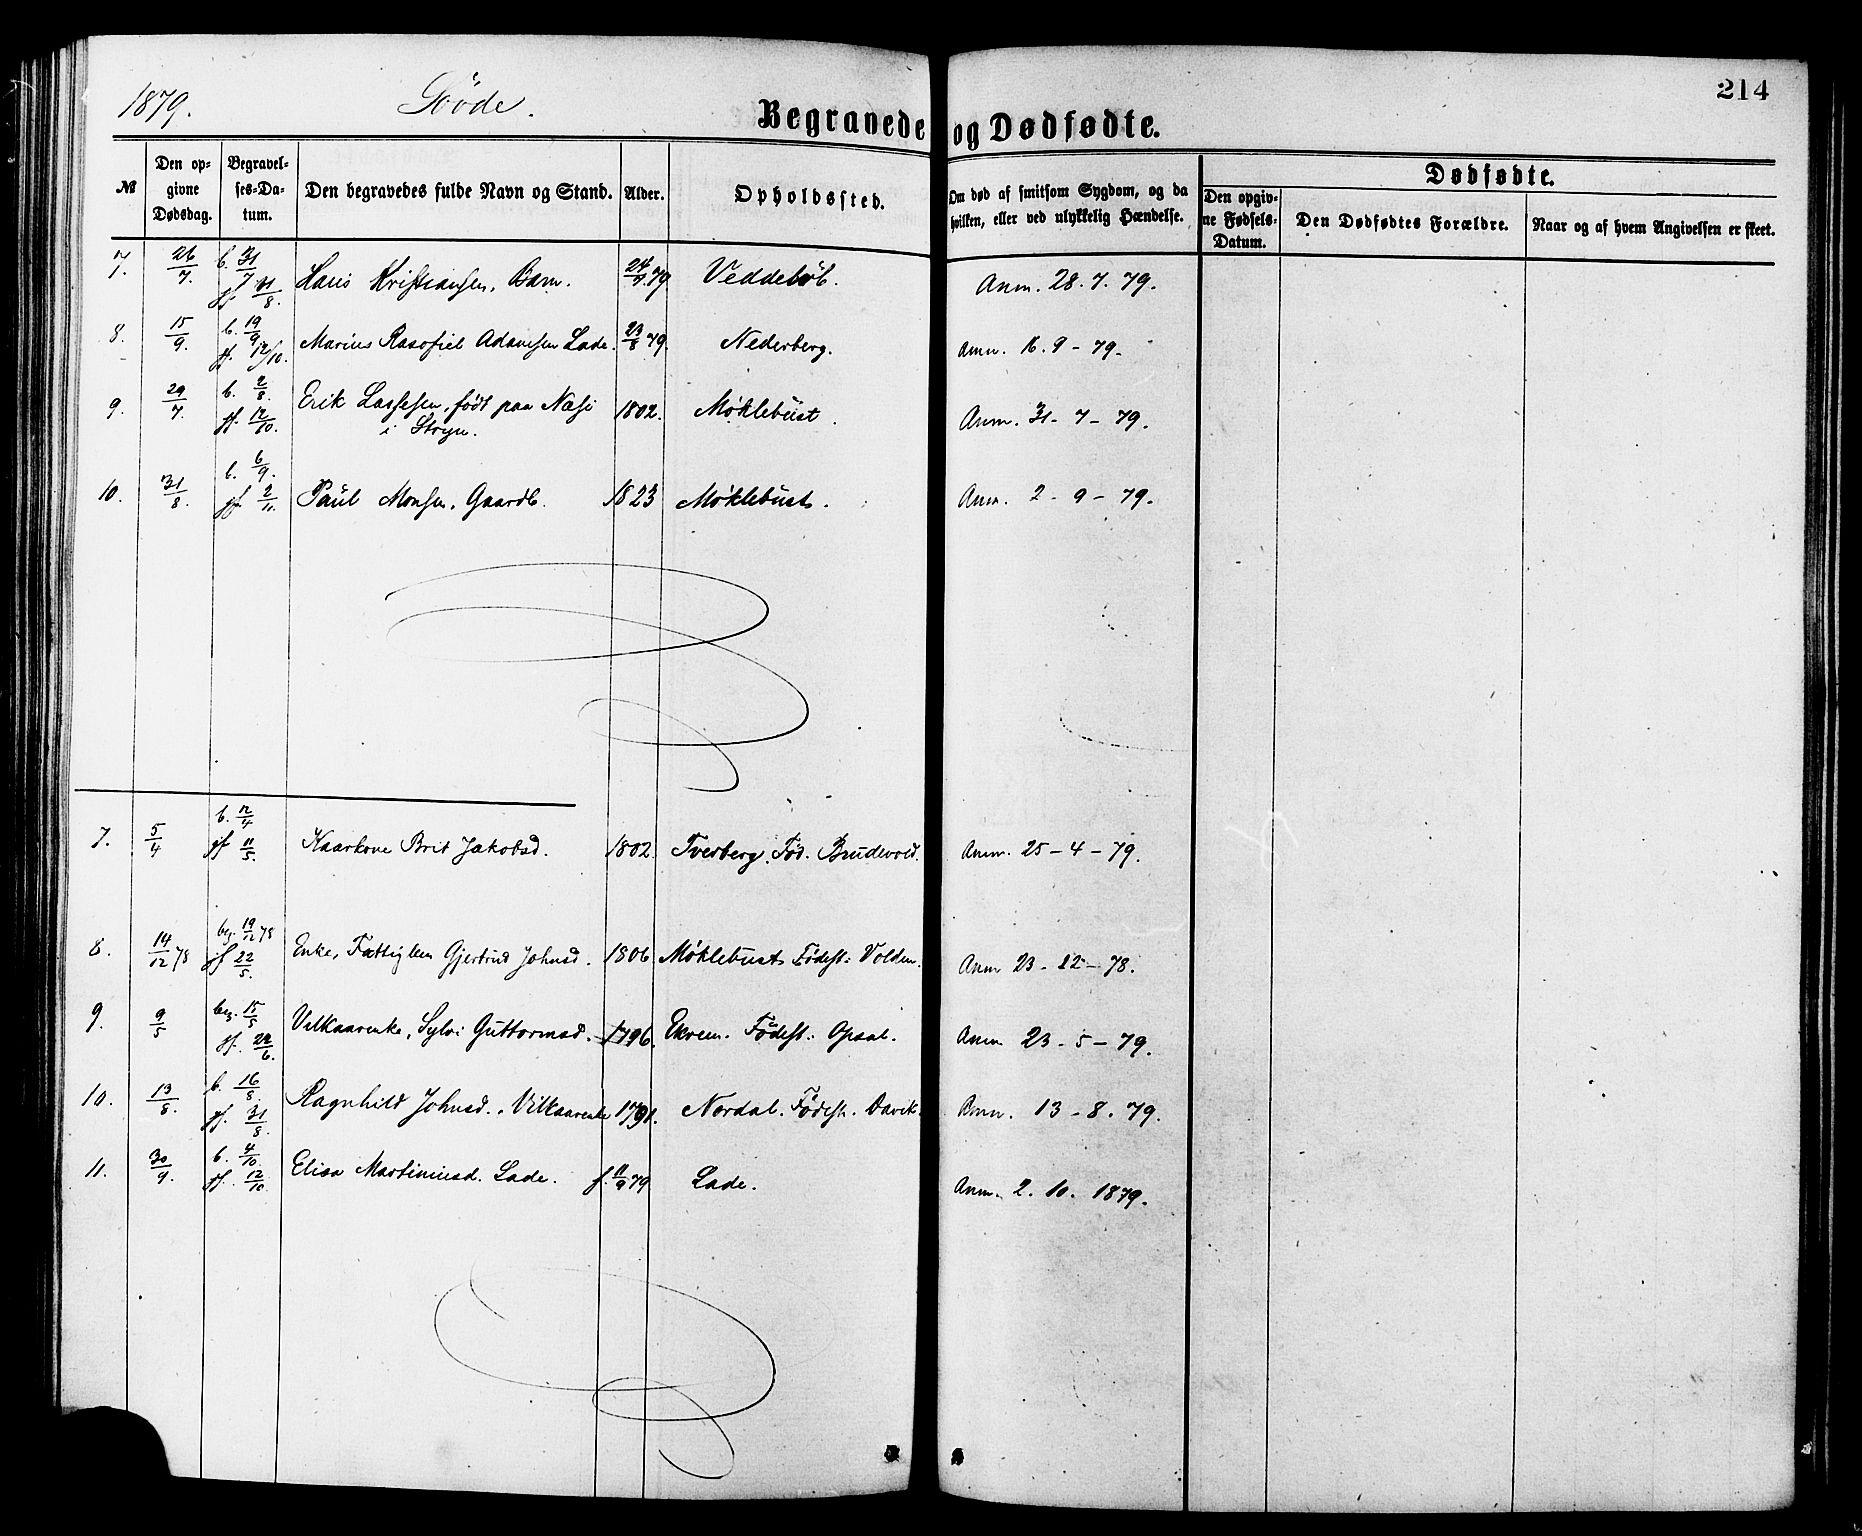 1879. Døde. Begravede og Dødfødte. 214
№ Den opgivne Dødsdag. Begravelses-Datum. Den begravedes fulde Navn og Stand. Alder. Opholdssted. Om død af smitsom Sygdom, og da hvilken, eller ved ulykkelig Hændelse. Dødfødte.
Den opgivne Fødsels-Datum. Den Dødfødtes Forældre. Naar og af hvem Angivelsen er skeet.
7. 26/7. b. 31/7 jf. 31/8. Kristiansen, Barn. 24/7 79 Anm. 28. 7. 79.
8. 15/9. b. 19/9. jf. 12/10. Marius Adamsen Lade. 23/8 79. Nederberg. Anm. 16. 9 - 79.
9. 29/7. b. 2/8. jf. 12/10. Erik Lassesen, født paa Næsi 1802. Møklebust. Anm. 31 - 7 - 79.
i Stryn.
10. 31/8. b. 6/9. jf. 2/11. Paul Monsen, Gaardb. 1823 Møklebust. Anm. 2 - 9 - 79.
7. 5/4 b. 12/4 jf 11/5. Kaarkone Brit Jakobsd. 1802. Tverberg. Fød. Brudevold. Anm. 25 - 4 - 79.
8. 14/12 78 beg. 19/12 78 jf 22/5. Enke, Fattiglem Gjertrud Johnsd. 1806. Møklebust Fødest: Volden. Anm 23 - 12 - 78.
9. 9/5 beg. 15/5 jf. 22/6. Vilkaarenke, Sylvi Guttormsd. 1796. Ekrem. Fødest: Opsal. Anm 23 - 5 - 79.
10. 13/8. b. 16/8. jf. 31/8 Ragnhild Johnsd., Vilkaarenke 1791. Nordal. Fødest. Davik. Anm. 13 - 8. 79.
11. 30/9. b. 4/10. jf. 12/10. Elisa Martinusd. Lade. f. 11/9 79 Lade. Anm. 2. 10. 1879.